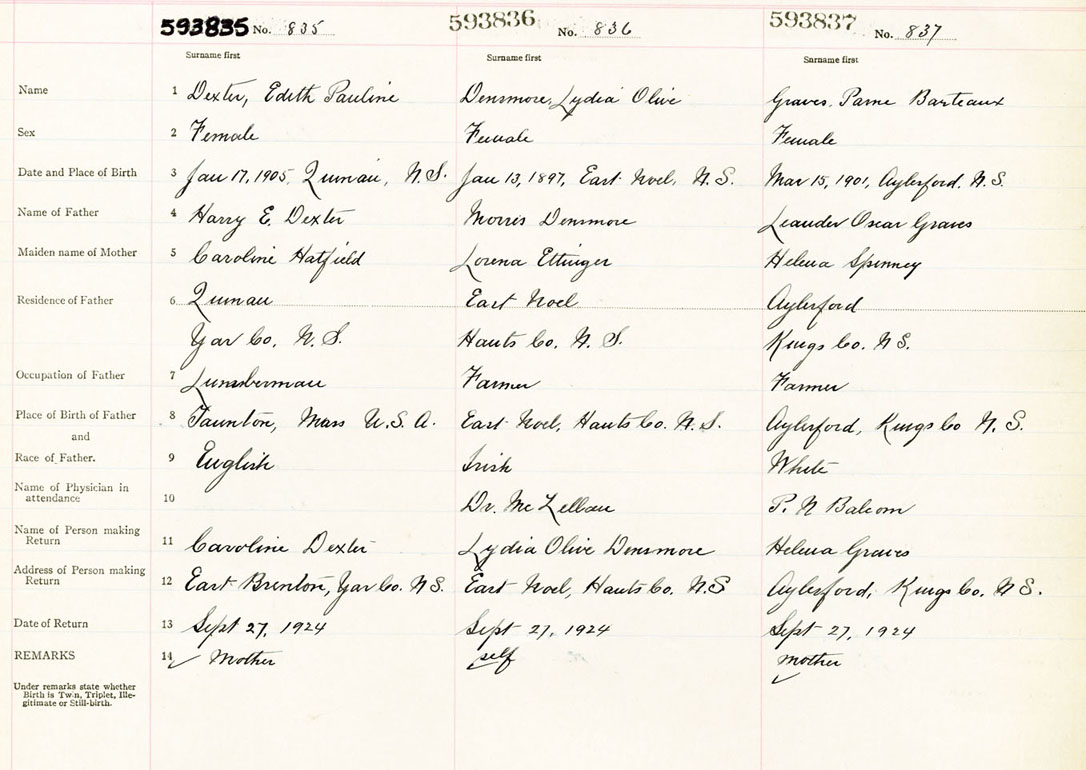 593835 No. 835 593836 No. 836 593837 No. 837
Surname first Surname first Surname first
Name 1 Dexter, Edith Pauline Densmore, Lydia Olive Graves, Parne Barteaux
Sex 2 Female Female Female
Date and Place of Birth 3 Jan 17, 1905, Quinan, N.S. Jan 13, 1897, East Noel, N.S. Mar 15, 1901, Aylesford, N.S.
Name of Father 4 Harry E. Dexter Morris Densmore Leander Oscar Graves
Maiden name of Mother 5 Caroline Hatfield Lorena Ettinger Helena Spinney
Residence of Father 6 Quinan East Noel Aylesford
Yar Co. N.S. Hants Co. N.S. Kings Co. N.S.
Occupation of Father 7 Lumberman Farmer Farmer
Place of Birth of Father 8 Taunton, Mass U.S.A. East Noel, Hants Co. N.S. Aylesford, Kings Co N.S.
and
Race of Father. 9 English Irish White
Name of Physician in
attendance 10 Dr. P. N Balcom
Name of Person making
Return 11 Caroline Dexter Lydia Olive Densmore Helena Graves
Address of Person making
Return 12 East Yar Co. N.S. East Noel, Hants Co. N.S Aylesford, Kings Co. N.S.
Date of Return 13 Sept 27, 1924 Sept 27, 1924 Sept 27, 1924
REMARKS 14 Mother self Mother
Under remarks state whether
Birth is Twin, Triplet, Ille-
gitimate or Still-birth.